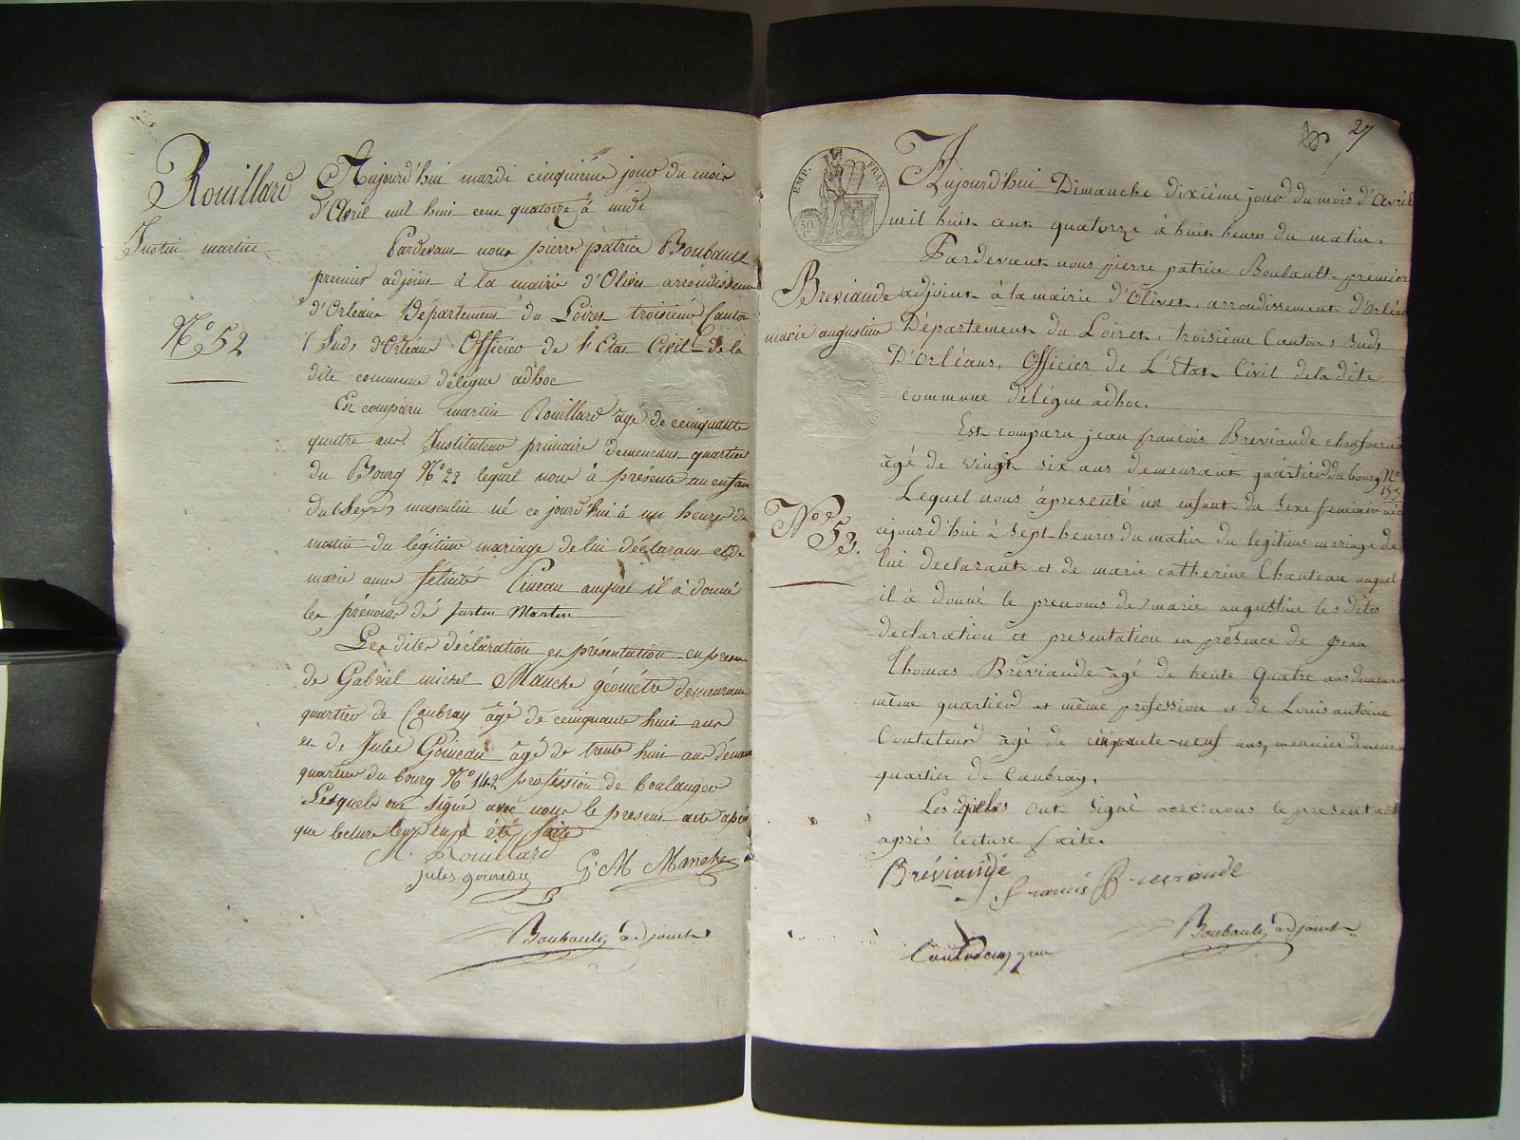 Rouillard
Justin martin
N.o 52
Aujourd'hui mardi cinquième jour du mois
d'Avril mil huit cent quatorze à midi
Pardevant nous pierre patrice Boubault
premier adjoint à la mairie d'Olivet arrondissement
d'Orléans Département du Loiret troisième Canton
Sud d'Orléans Officier de l'Etat Civil de la
dite commune délégué adhoc
Est comparu martin Rouillard âgé de cinquante
quatre ans Instituteur primaire demeurant quartier
du Bourg N.o 22 lequel nous à présenté un enfant
du Sexe masculin né ce jourd'hui à un heure du
matin du légitime mariage de lui déclarant et de
marie anne félicité Pineau auquel il à donné
les prénoms de Justin Martin
Les dites déclaration et présentation en présence
de Gabriel michel Manche géomètre demeurant
quartier de Caubray âgé de cinquante huit ans
et de Jules Goineau âgé de trente huit ans demeurant
quartier du bourg N.o 142 profession de boulanger
Lesquels ont signé avec nous le present acte après
que lecture leur en à été faite
M. Rouillard
jules goineau G. M Manche
Boubault, adjoint
27
EMP. FRAN.
Breviande
marie augustine
N.o 53.
Aujourd'hui Dimanche dixième jour du mois d'Avril
mil huit cent quatorze à huit heures du matin.
Pardevant nous pierre patrice Boubault premier
adjoint à la mairie d'Olivet arrondissement d'Orléans
Département du Loiret, troisième Canton Sud
D'Orléans, Officier de L'Etat Civil de la dite
commune délégué adhoc.
Est comparu jean francois Breviande chaufournier
âgé de vingt six ans demeurant quartier du bourg N.o
Lequel nous à présenté un enfant du Sexe feminin née
cejourd'hui à Sept heures du matin du legitime mariage de
lui declarant et de marie catherine Chanteau auquel
il à donné le prenoms de marie augustine les dites
declaration et presentation en présence de jean
Thomas Bréviande âgé de trente quatre ans demeurant
même quartier et même profession et de Louis antoine
Coutadeur âgé de cinquante neuf ans, meunier demeurant
quartier de Caubray.
Lesquels ont signé avec nous le present acte
après lecture faite.
Bréviande
francois Breviande
Boubault, adjoint